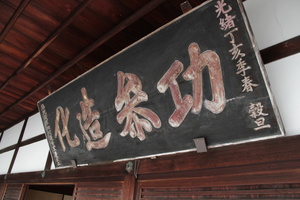 光緒丁亥季春 穀旦
功參造化